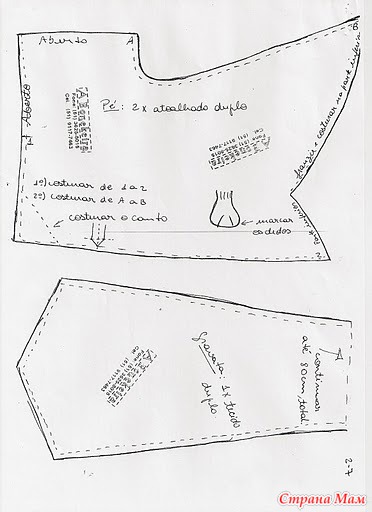 Aberto
A
B
Aberto
Pé: 2x atoalhado duplo
franzir e costurar na parte inferior
1º) costurar de 1 a 2
2º) costurar de A a B
costurar o canto
marcar
os dedos
2
gravata: 1x tecido
duplo
continuar
até 80cm total.
2-7
Страна Мам